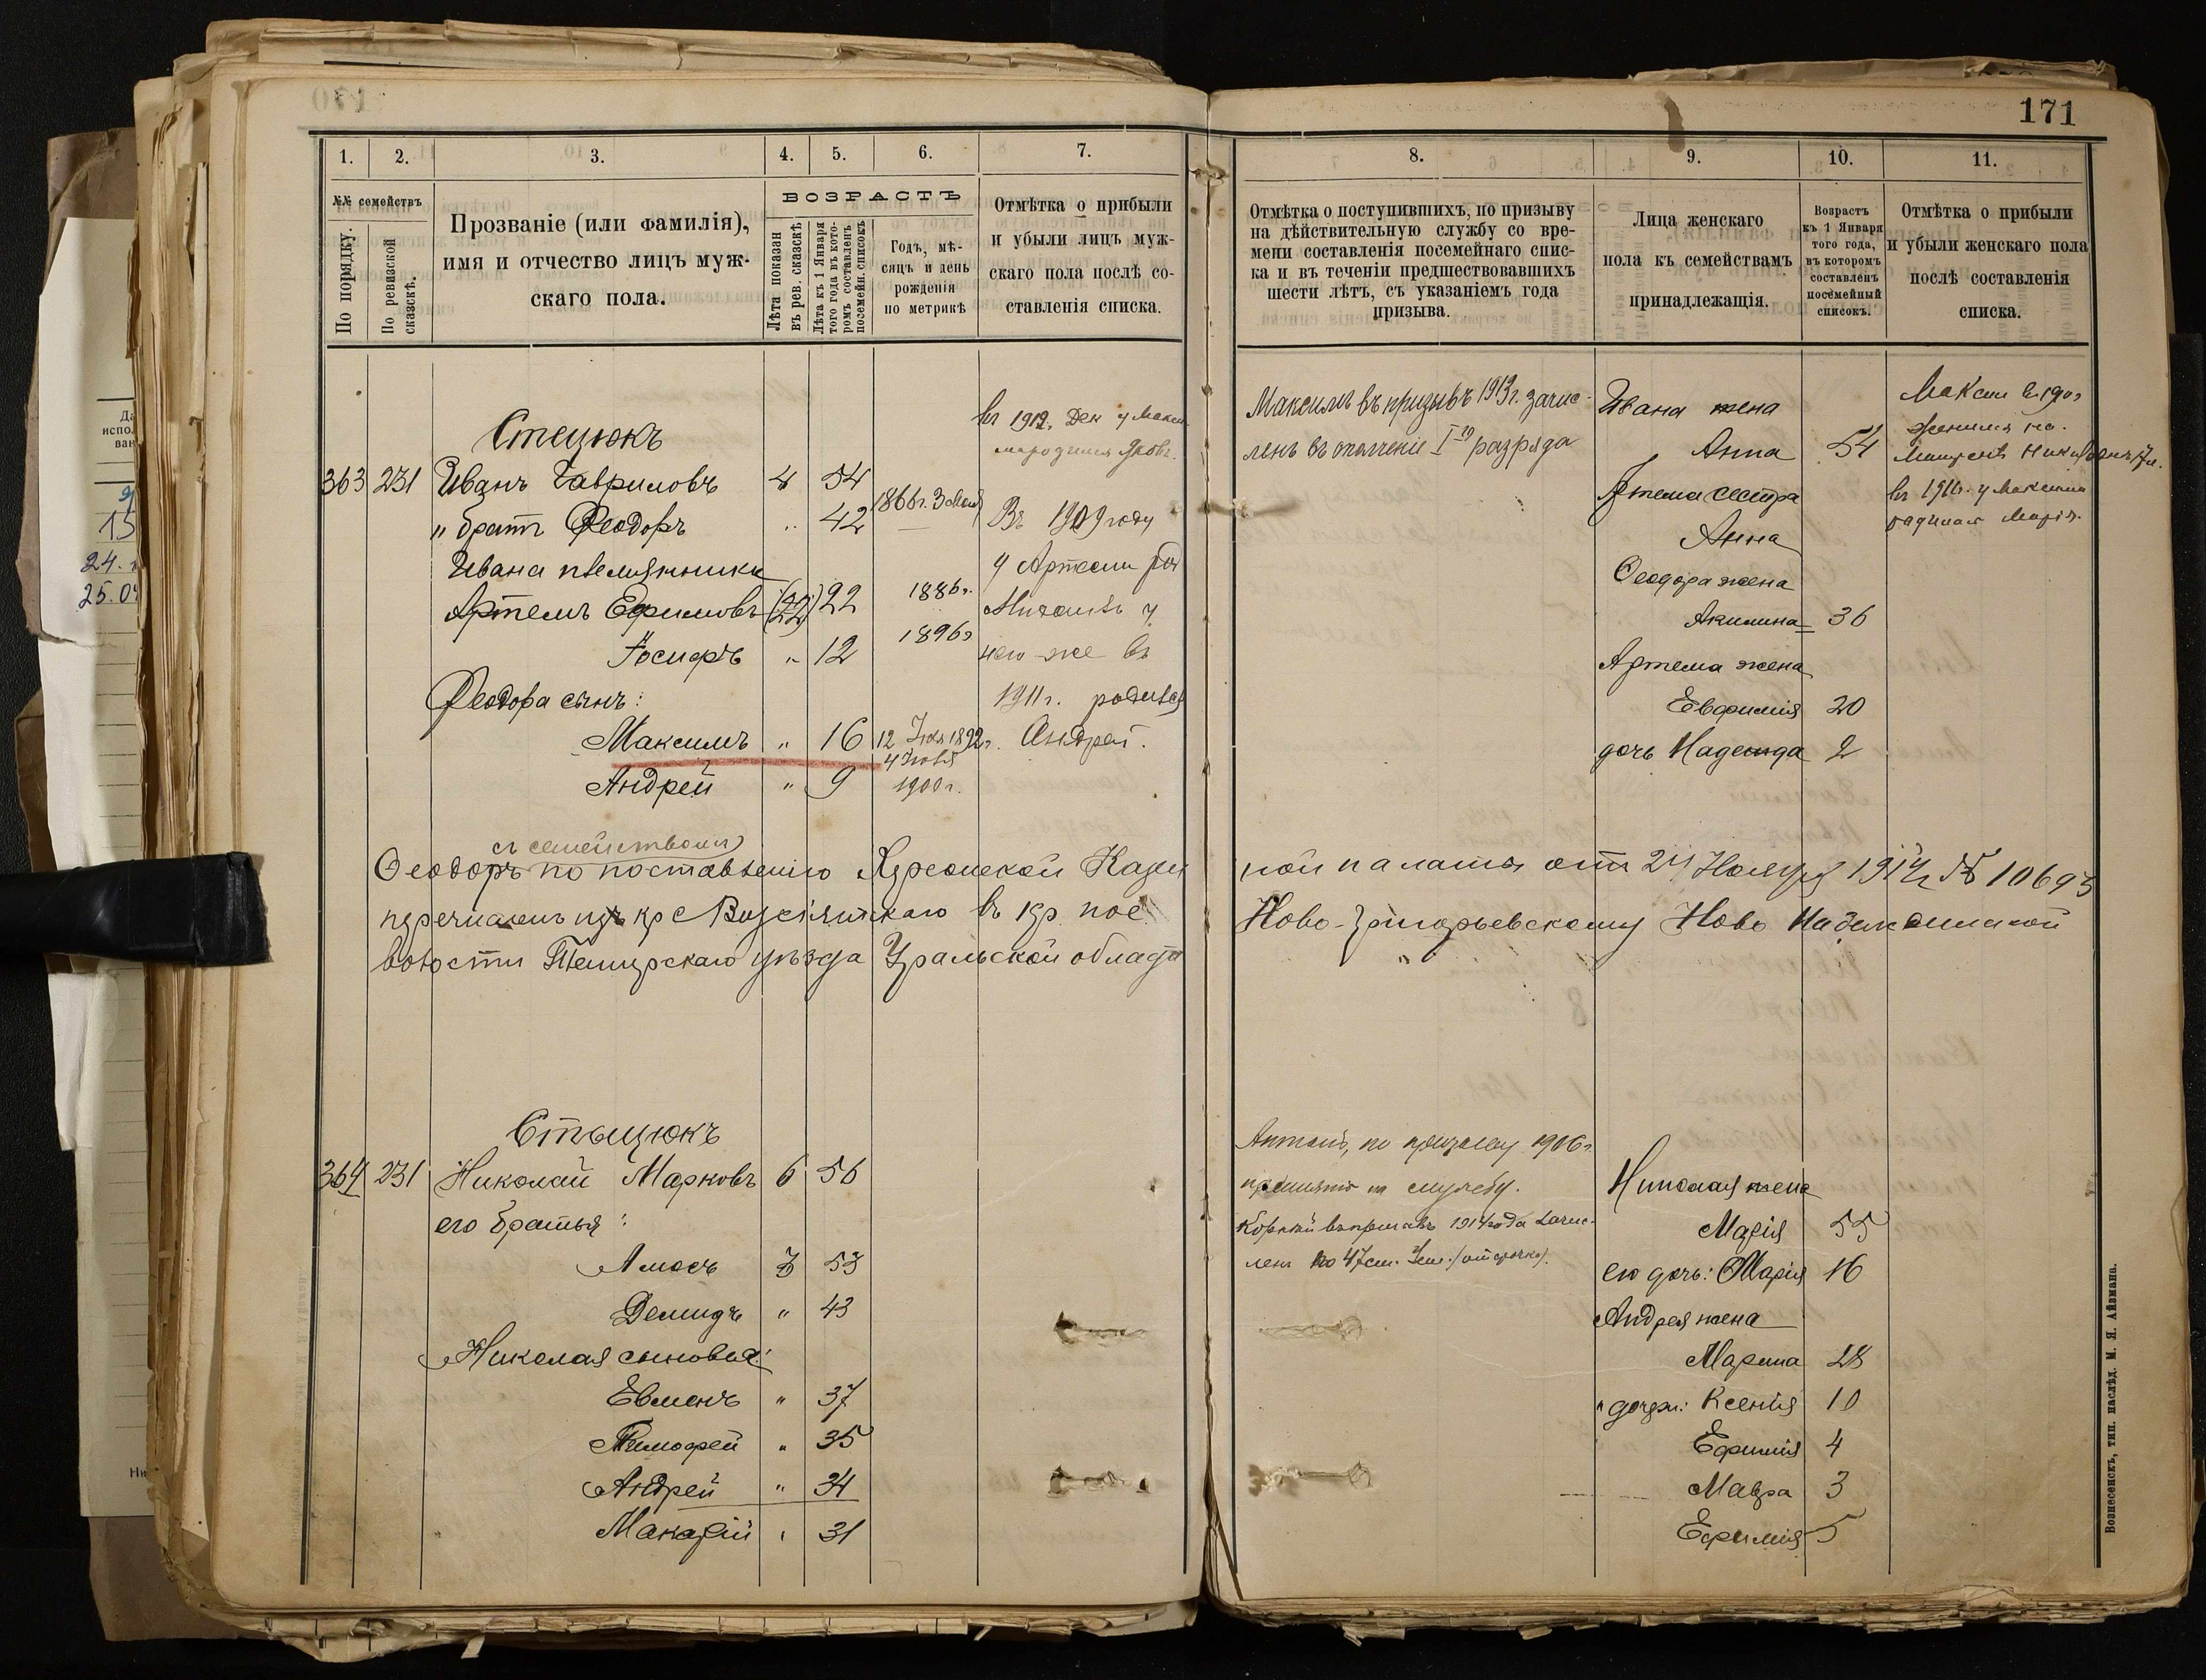 171
1.
2.
3.
4.
5.
6.
7.
№№ семействъ
По порядку.
По ревизской сказскѣ.
Прозваніе (или фамилія),
имя и отчество лицъ муж-
скаго пола.
ВОЗРАСТЪ
Лѣта показан
въ рев. сказскѣ
Лѣта къ 1 Января
того года въ кото-
ромъ составленъ
посемейн. списокъ
Годъ, мѣ-
сяцъ и день
рожденія
по метрикѣ
Отмѣтка о прибыли
и убыли лицъ муж-
скаго пола послѣ со-
ставленія списка.
Стецюкъ
363 231 Иванъ Гавриловъ 4 54
" братъ Феодоръ " 42 1866г.
Ивана племянники
Артемъ Ефимовъ 22 1886г.
Іосифъ " 12 1896г
Феодора сынъ:
Максимъ " 16 12 1892г.
Андрей " 9 1900г.
въ 1912.
Въ 1909 году
у Артема
него-же въ
1911г. родился
Андрей.
съ семействомъ
Феодоръ по поставленію Херсонской Казен
перечисленъ изъ кр с Возсіятскаго въ кр. пос
волости Темирскаго уѣзда Уральской области
Стецюкъ
364 231 Николай Марковъ 6 56
его братья:
Амосъ 3 53
Демидъ " 43
Николая сыновья:
Евменъ " 37
Тимофей " 35
Андрей " 34
Макарій " 31
8.
9.
10.
11.
Отмѣтка о поступившихъ, по призыву
на дѣйствительную службу со вре-
мени составленія посемейнаго спис-
ка и въ теченіи предшествовавшихъ
шести лѣтъ, съ указаніемъ года
призыва.
Лица женскаго
пола къ семействамъ
принадлежащія.
Возрастъ
къ 1 Января
того года,
въ которомъ
составленъ
посемейный
списокъ.
Отмѣтка о прибыли
и убыли женскаго пола
послѣ составленія
списка.
Максимъ въ призывъ 1913г. зачис-
ленъ въ ополченіе I го разряда
Ивана жена
Анна 54
Артема сестра
Анна
Феодора жена
Акилина 36
Артема жена
Евфимія 20
дочь Надежда 2
въ 1916г. у Максима
родилась Марія.
ной палаты отъ 24 Ноября 1914г № 10693
Ново-Григорьевскому Ново
Антонъ, по призыву 1906г.
принятъ на службу.
Николая жена
Марія 55
его дочь: Марія 16
Андрея жена
Марина 28
" дочери: Ксенія 10
Ефимія 4
Мавра 3
Ефимія 5
Вознесенскъ, тип. наслѣд. М. Я. Айзмана.